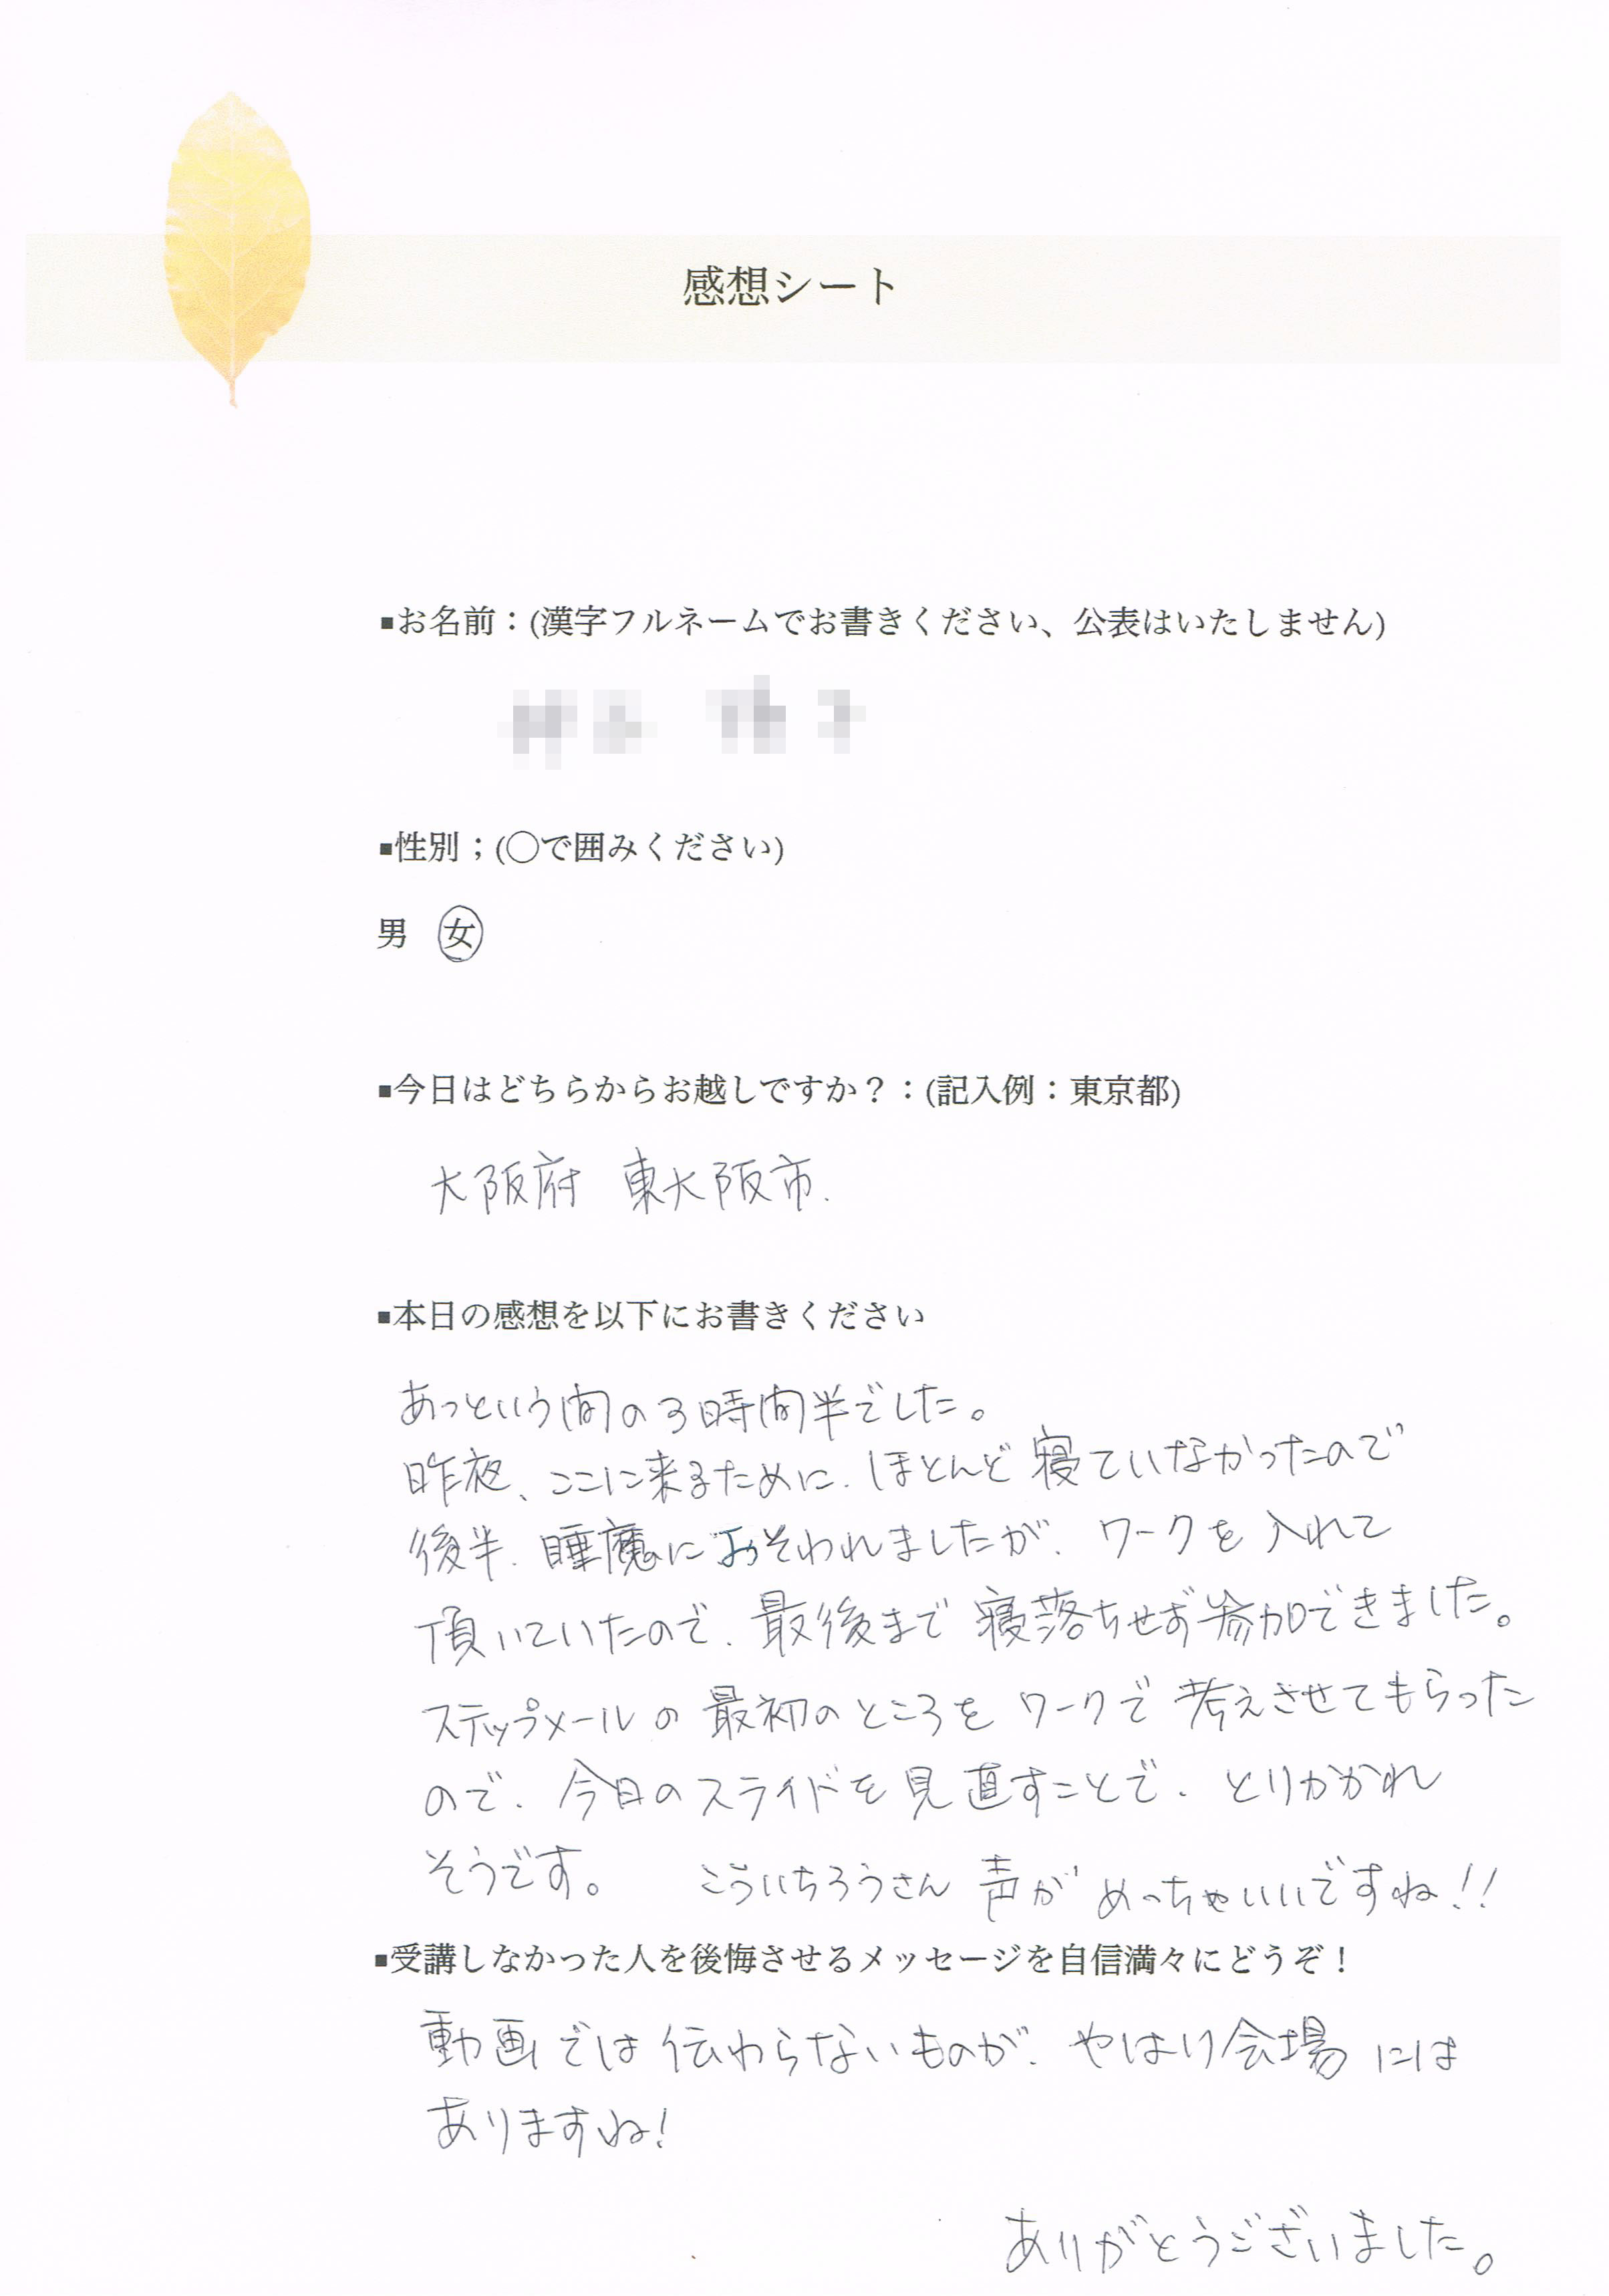 感想シート
■お名前：(漢字フルネームでお書きください、公表はいたしません)
■性別；(〇で囲みください)
男 女
■今日はどちらからお越しですか？：(記入例：東京都)
大阪府 東大阪市.
■本日の感想を以下にお書きください
あっという間の3時間半でした。
昨夜、ここに来るために、ほとんど寝ていなかったので
後半、睡魔におそわれましたが、ワークを入れて
頂いていたので、最後まで寝落ちせず参加できました。
ステップメールの最初のところをワークで考えさせてもらった
ので、今日のスライドを見直すことで、とりかかれ
そうです。 こういちろうさん声がめっちゃいいですね!!
■受講しなかった人を後悔させるメッセージを自信満々にどうぞ！
動画では伝わらないものが、やはり会場には
ありますね!
ありがとうございました。